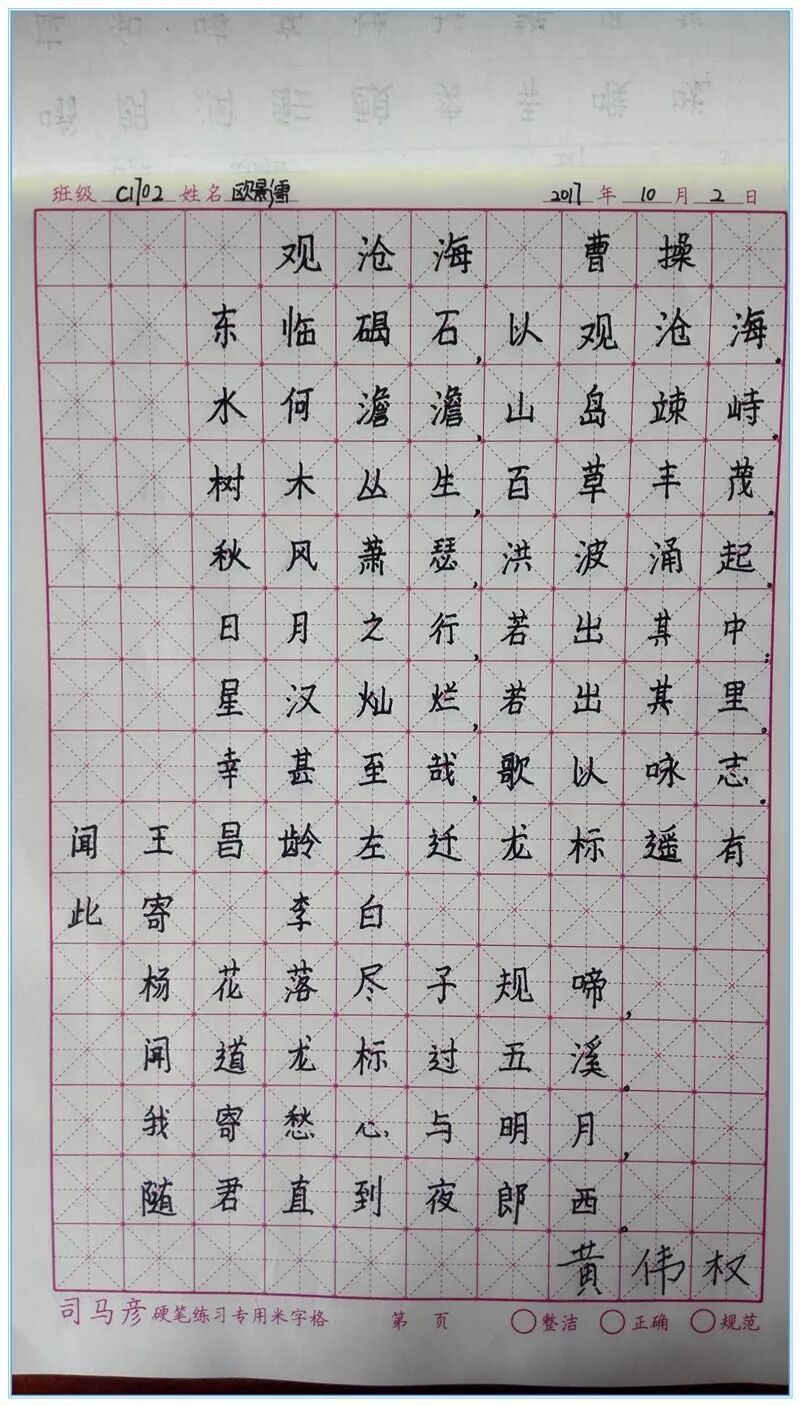 班级 C1702 姓名 欧影雪 2017 年 10 月 2 日
观沧海 曹操
东临碣石,以观沧海.
水何澹澹,山岛竦峙.
树木丛生,百草丰茂.
秋风萧瑟,洪波涌起.
日月之行,若出其中;
星汉灿烂,若出其里.
幸甚至哉,歌以咏志.
闻王昌龄左迁龙标遥有
此寄 李白
杨花落尽子规啼,
闻道龙标过五溪.
我寄愁心与明月,
随君直到夜郎西.
黄伟权
司马彦硬笔练习专用米字格 第 页 整洁 正确 规范